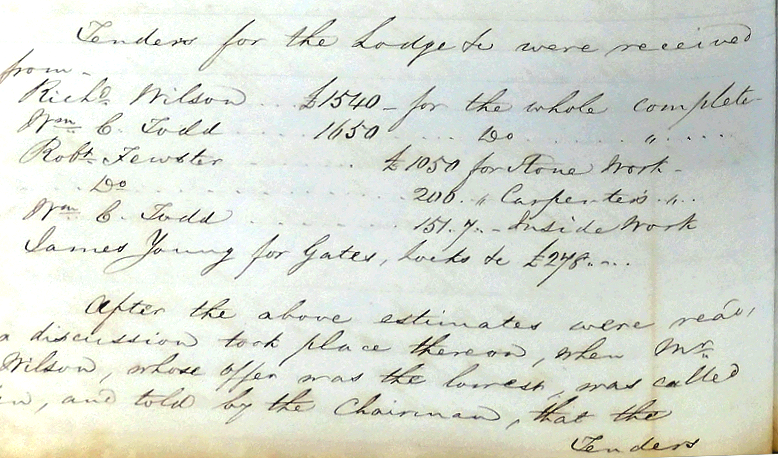 Tenders for the Lodge &c were received
from -
Richd. Wilson .. £1540 - for the whole complete
Wm. C. Todd .... 1650 .... Do ...... " ....
Robt. Fewster ....... £1050 for Stone Work -
.... Do ........... 200 . " Carpenter's . " ..
Wm. C. Todd ........ 151. 7. - Inside Work
James Young for Gates, Locks &c £278 " - ..
After the above estimates were read,
a discussion took place thereon, when Mr.
Wilson, whose offer was the lowest, was called
in, and told by the Chairman, that the
Tenders